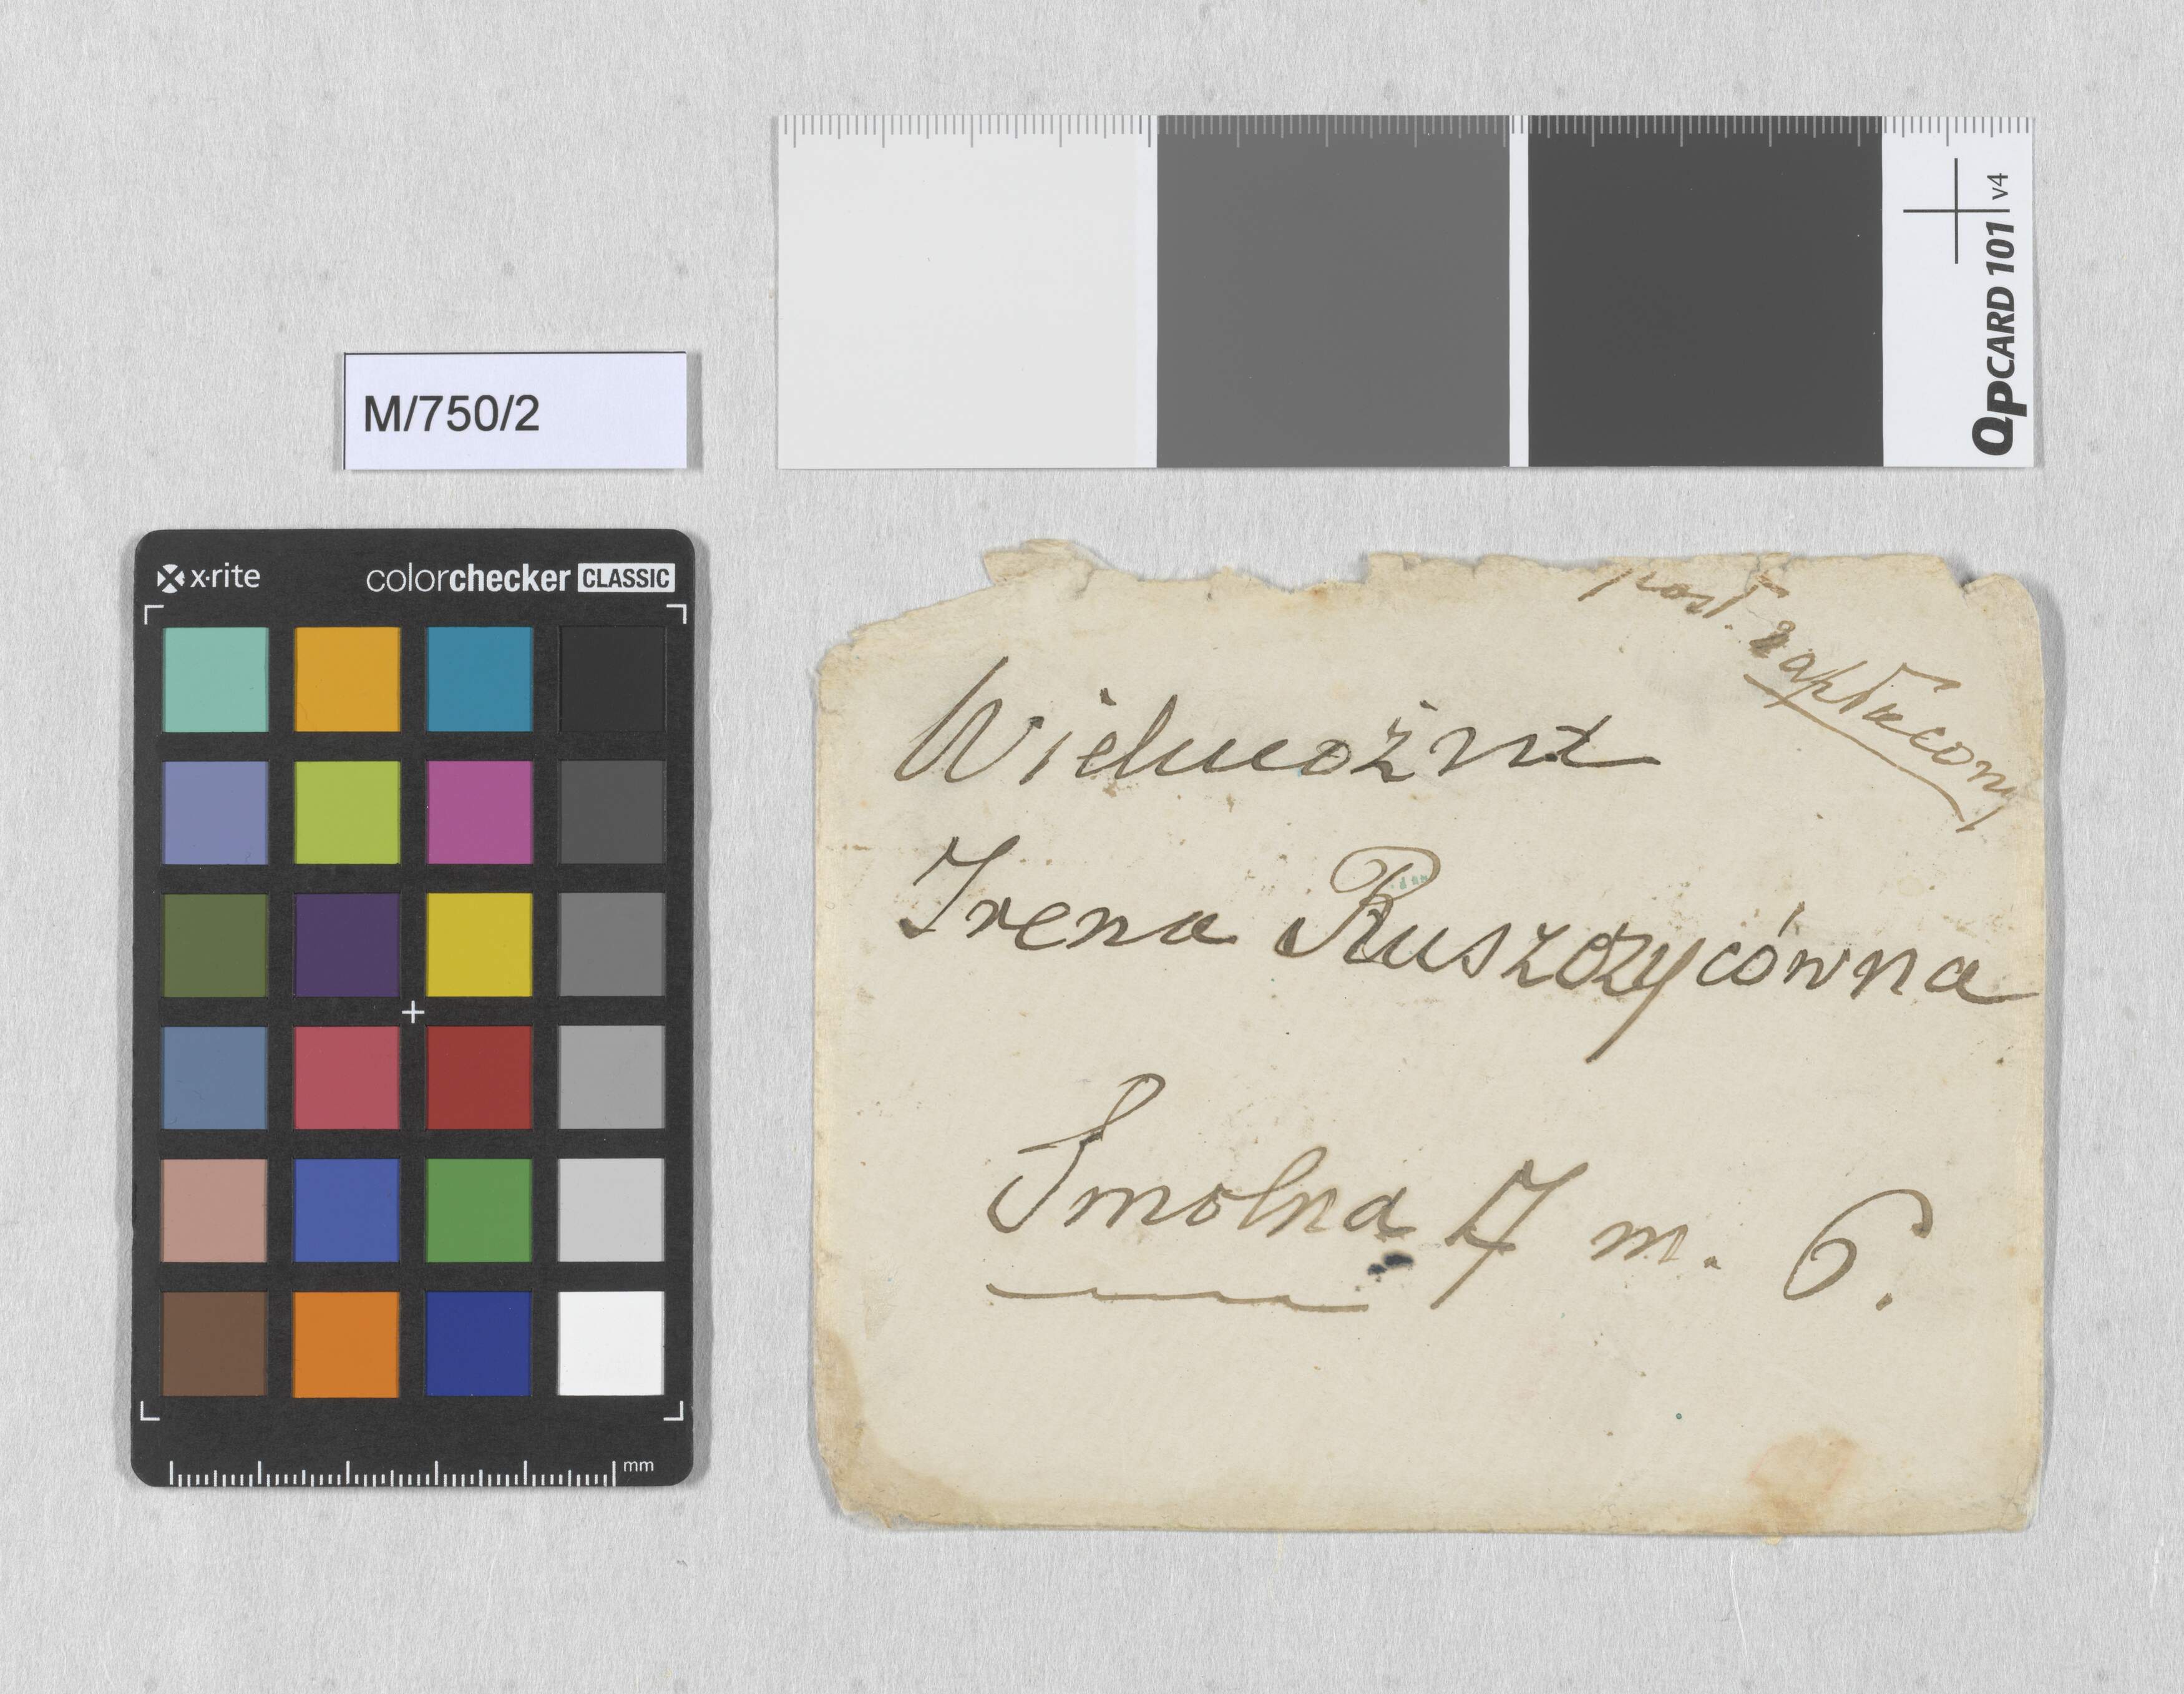 QPCARD 101 v4
M/750/2
x·rite colorchecker CLASSIC
mm
post. zapłacony
Wielmożna
Irena Ruszczycówna
Smolna 7 m. 6.